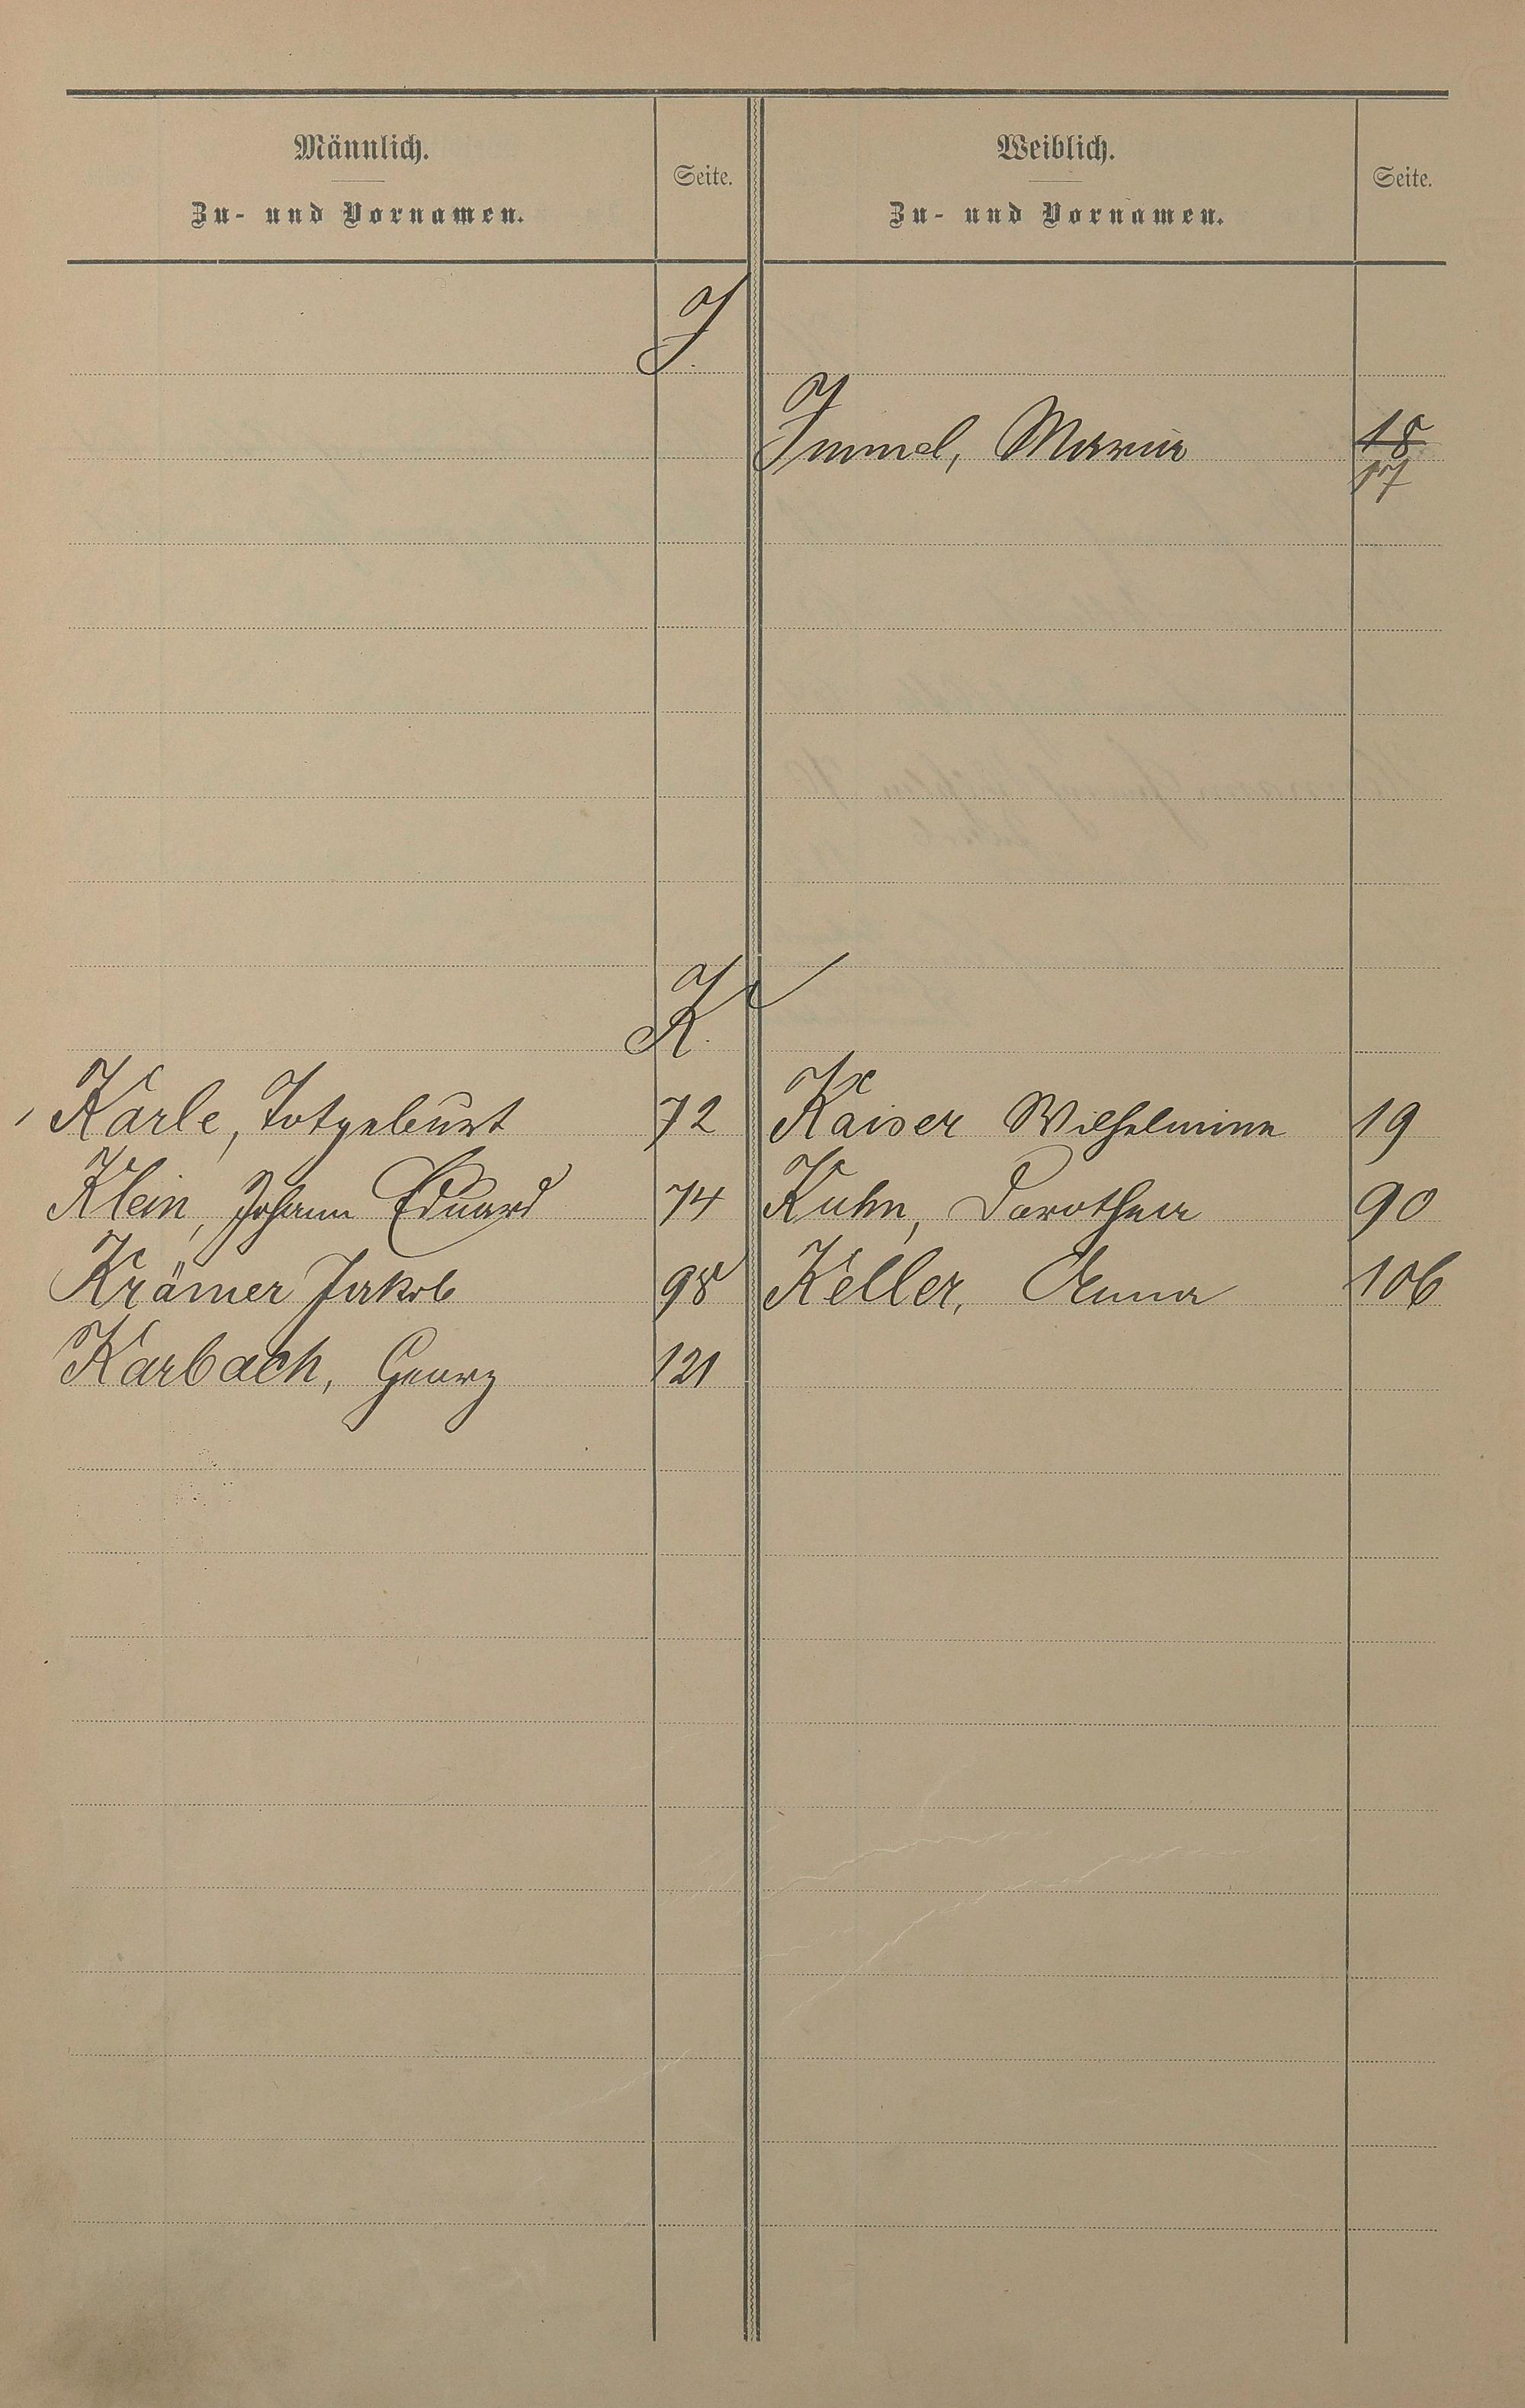 Männlich.
Zu- und Vornamen.
Seite.
Weiblich.
Zu- und Vornamen.
Seite.
J.
Immel, Maria 18
17
K.
Karle, Totgeburt 72 Kaiser Wilhelmine 19
Klein, Johann Eduard 74 Kuhn, Dorothea 90
Krämer Jakob 98 Keller, Anna 106
Karbach, Georg 121